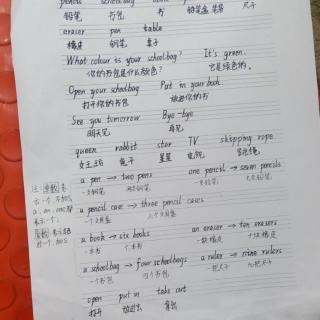 pencil schoolbag
铅笔 书包 书 铅笔盒 尺子
eraser pen table
橡皮 钢笔 桌子
What colour is your schoolbag? It's green.
你的书包是什么颜色? 它是绿色的。
Open your schoolbag Put in your book
打开你的书包 放进你的书
See you tomorrow Bye-bye
明天见 再见
queen rabbit star TV skipping rope
女王 兔子 星星 电视
a pen → two pens one pencil → seven pencils
一支钢笔 两支钢笔 一支铅笔 七支铅笔
a pencil case → three pencil cases
一个文具盒 三个文具盒
a book → six books an eraser → ten erasers
一本书 六本书 一块橡皮 十块橡皮
a schoolbag → four schoolbags a ruler → nine rulers
一个书包 四个书包 一把尺子 九把尺子
open put in take out
打开 放进去 拿出